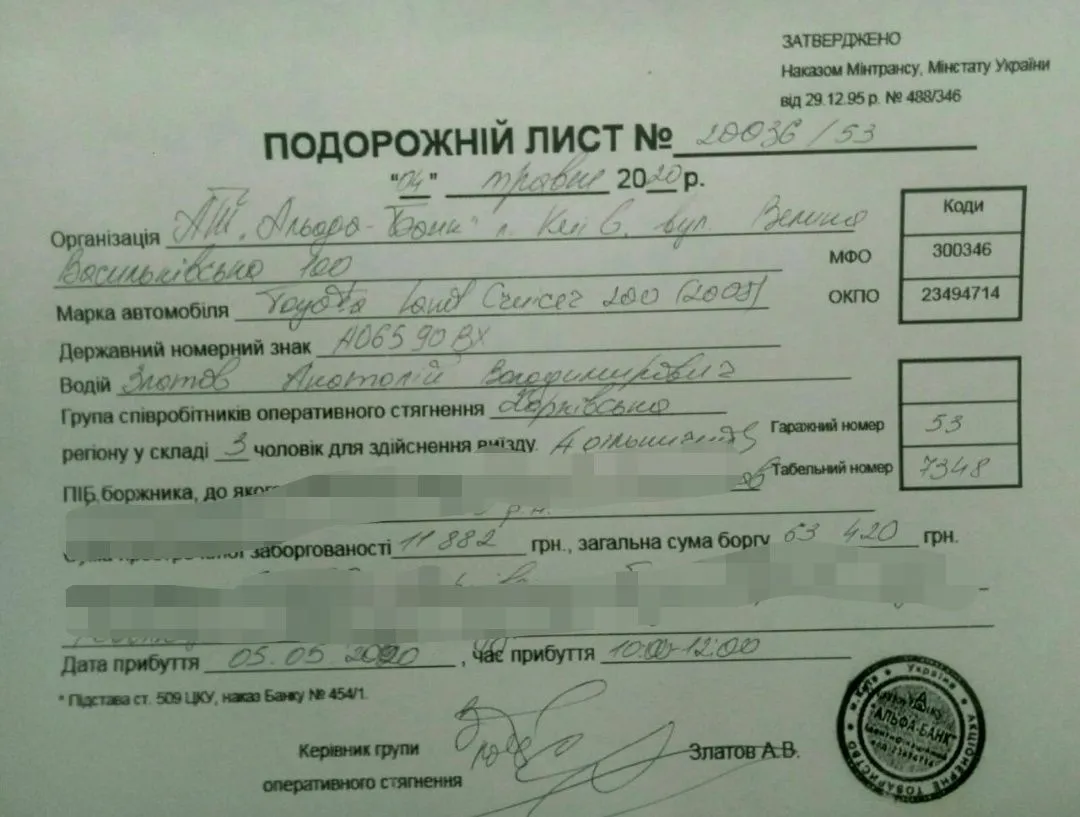 ЗАТВЕРДЖЕНО
Наказом Мінтрансу, Мінстату України
від 29.12.95 р. № 488/346
ПОДОРОЖНІЙ ЛИСТ № 20036/53
"04" травня 2020 р.
Коди
Організація АТ "Альфа-Банк" м. Київ, вул. Велика
МФО 300346
Васильківська 100
ОКПО 23494714
Марка автомобіля Toyota Land Cruiser 200 (2008)
Державний номерний знак АО6590ВХ
Водій Златов Анатолій Володимирович
Група співробітників оперативного стягнення Харківська
Гаражний номер 53
регіону у складі 3 чоловік для здійснення виїзду.
Табельний номер 7348
ПІБ боржника, до
заборгованості 11 882 грн., загальна сума боргу 63 420 грн.
Дата прибуття 05.05.2020, час прибуття 10:00-12:00
* Підстава ст. 509 ЦКУ, наказ Банку № 454/1.
Керівник групи
оперативного стягнення
Златов А.В.
Україна * Акціонерне товариство * м. Київ
"АЛЬФА-БАНК"